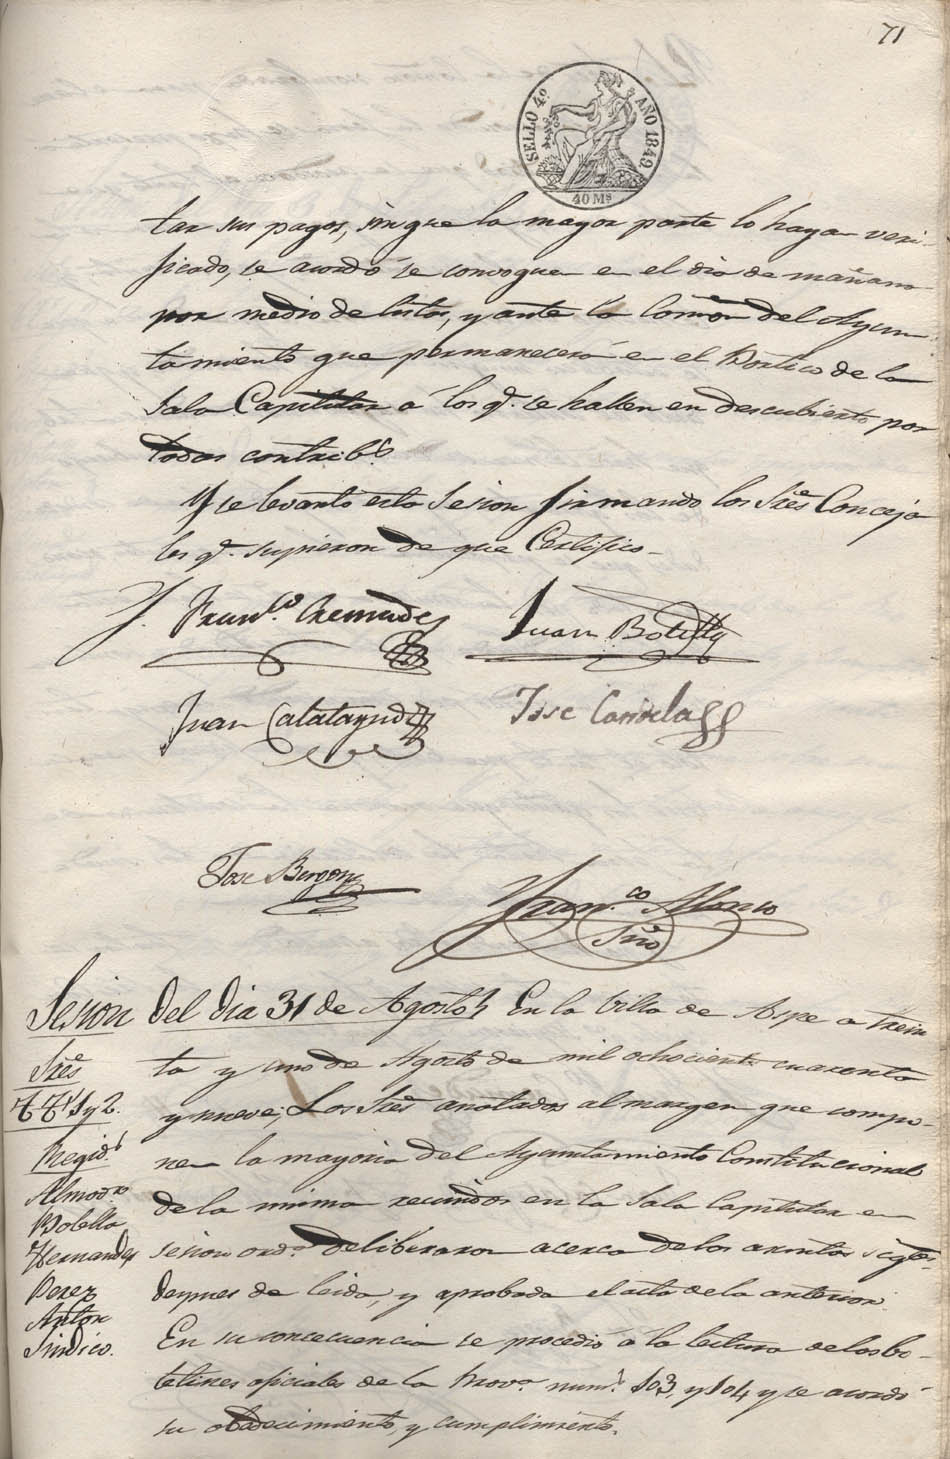 71
SELLO 4º AÑO 1849.
40 Ms
tar sus pagos, sin que la mayor parte lo hayan veri-
ficado, se acordó se convoquen en el dia de mañana
por medio de listas, y ante la Comon del Ayun-
tamiento que permanecerá en el Portico de la
Sala Capitular a los q.e se hallen en descubierto por
todas contribs
Y se levantó esta Sesion firmando los Sres Conceja
les q.e supieron de que Certifico.
Franco Cremades
Juan Botella
Juan Calatayud
Jose Candela
Jose
Franco Alonso
Srio
Sesion del dia 31 de Agosto
En la Villa de Aspe a trein
ta y uno de Agosto de mil ochocientos cuarenta
y nueve; Los Sres anotados al margen que compo-
nen la mayoria del Ayuntamiento Constitucional
de la misma reunidos en la Sala Capitular en
sesion orda deliberaron acerca de los asuntos sigtes
despues de leida, y aprobada el acta de la anterior.
En su concecuencia se procedió a la lectura de los bo-
letines oficiales de la Prova nums 103, y 104 y se acordó
su obedecimiento, y cumplimiento.
Sres
TTs 1 y 2.
Regids
Almodr
Botella
Hernandez
Perez
Anton
Sindico.